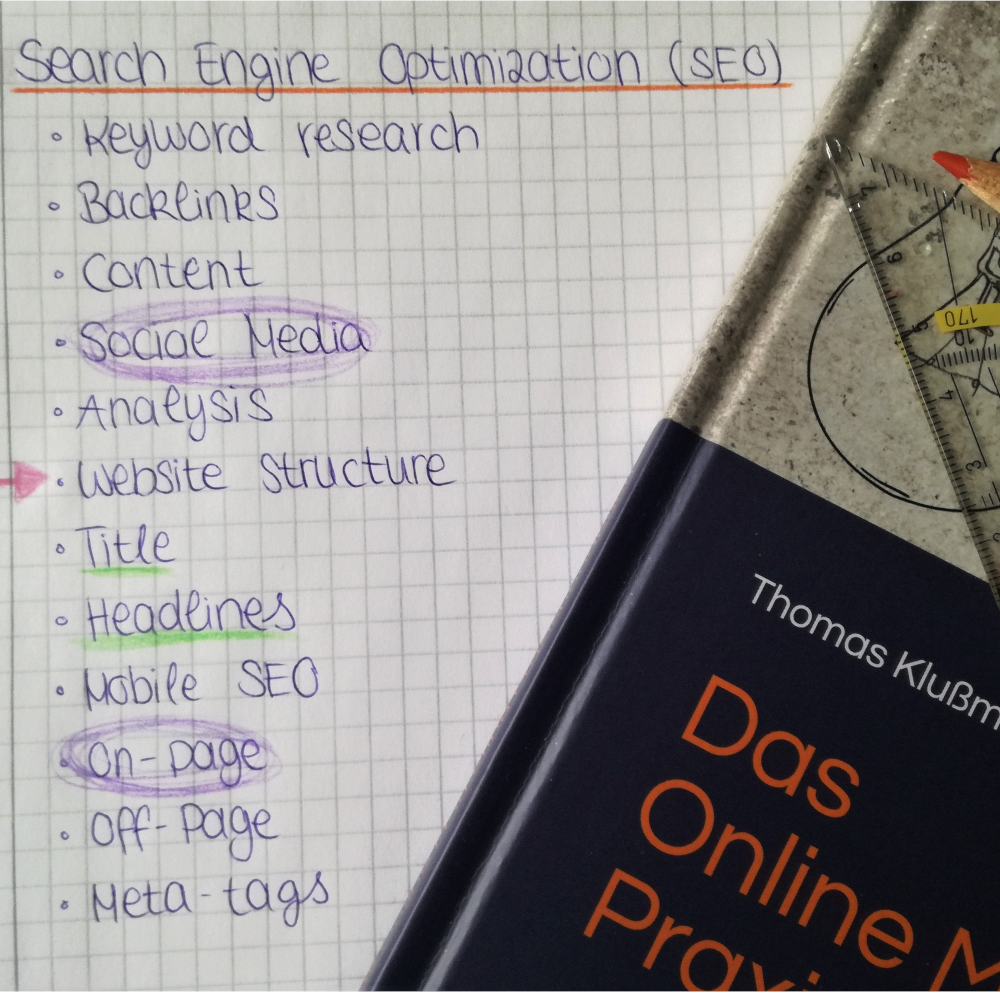 Search Engine Optimization (SEO)
• Keyword research
• Backlinks
• Content
• Social Media
• Analysis
• Website structure
• Title
• Headlines
• Mobile SEO
• On-page
• Off-Page
• Meta-tags
7
6
5
4
3
2
170
10
Thomas Klußm
Das
Online M
Praxi